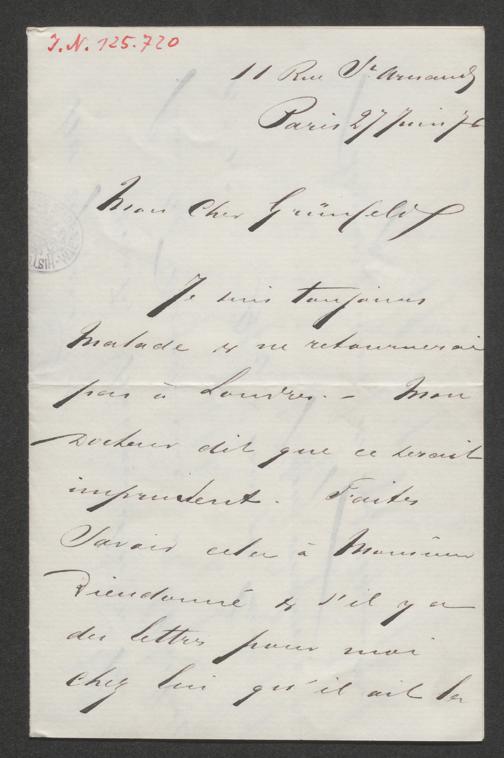 I.N. 125.720
11 Rue St Arnaud
Paris 27 Juin 76
Mon cher Grünfeld
Je suis toujours
malade & ne retournerai
pas à Londres. – Mon
docteur dit que ce serait
imprudent. Faites
savoir cela à Monsieur
Dieudonné & s'il y a
des lettres pour moi
chez lui qu'il ait la